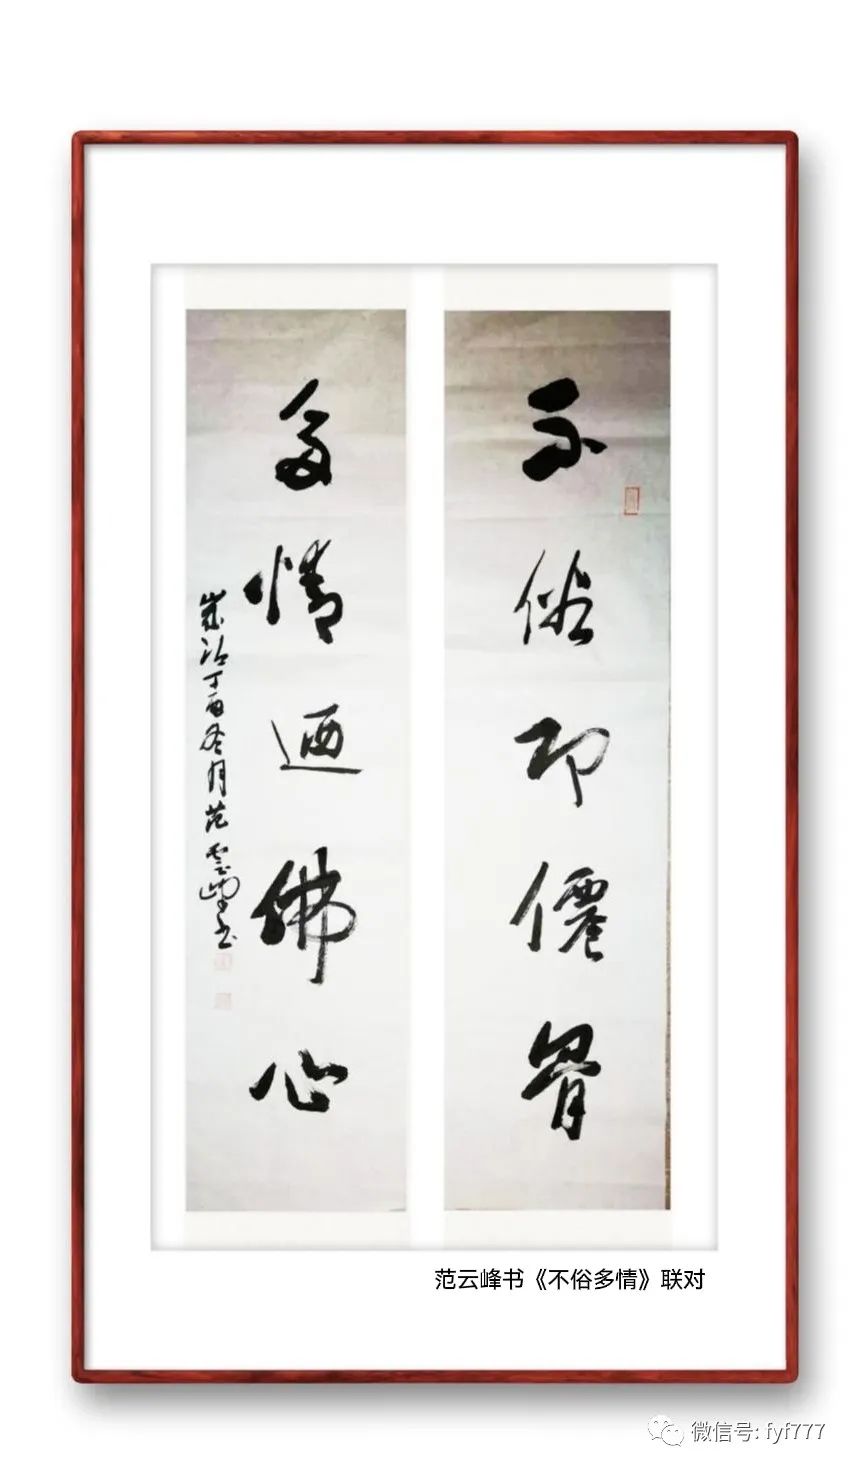 不俗即僊骨
多情迺佛心
歲次丁酉冬月范雲峰书
范云峰书《不俗多情》联对
微信号: fyf777